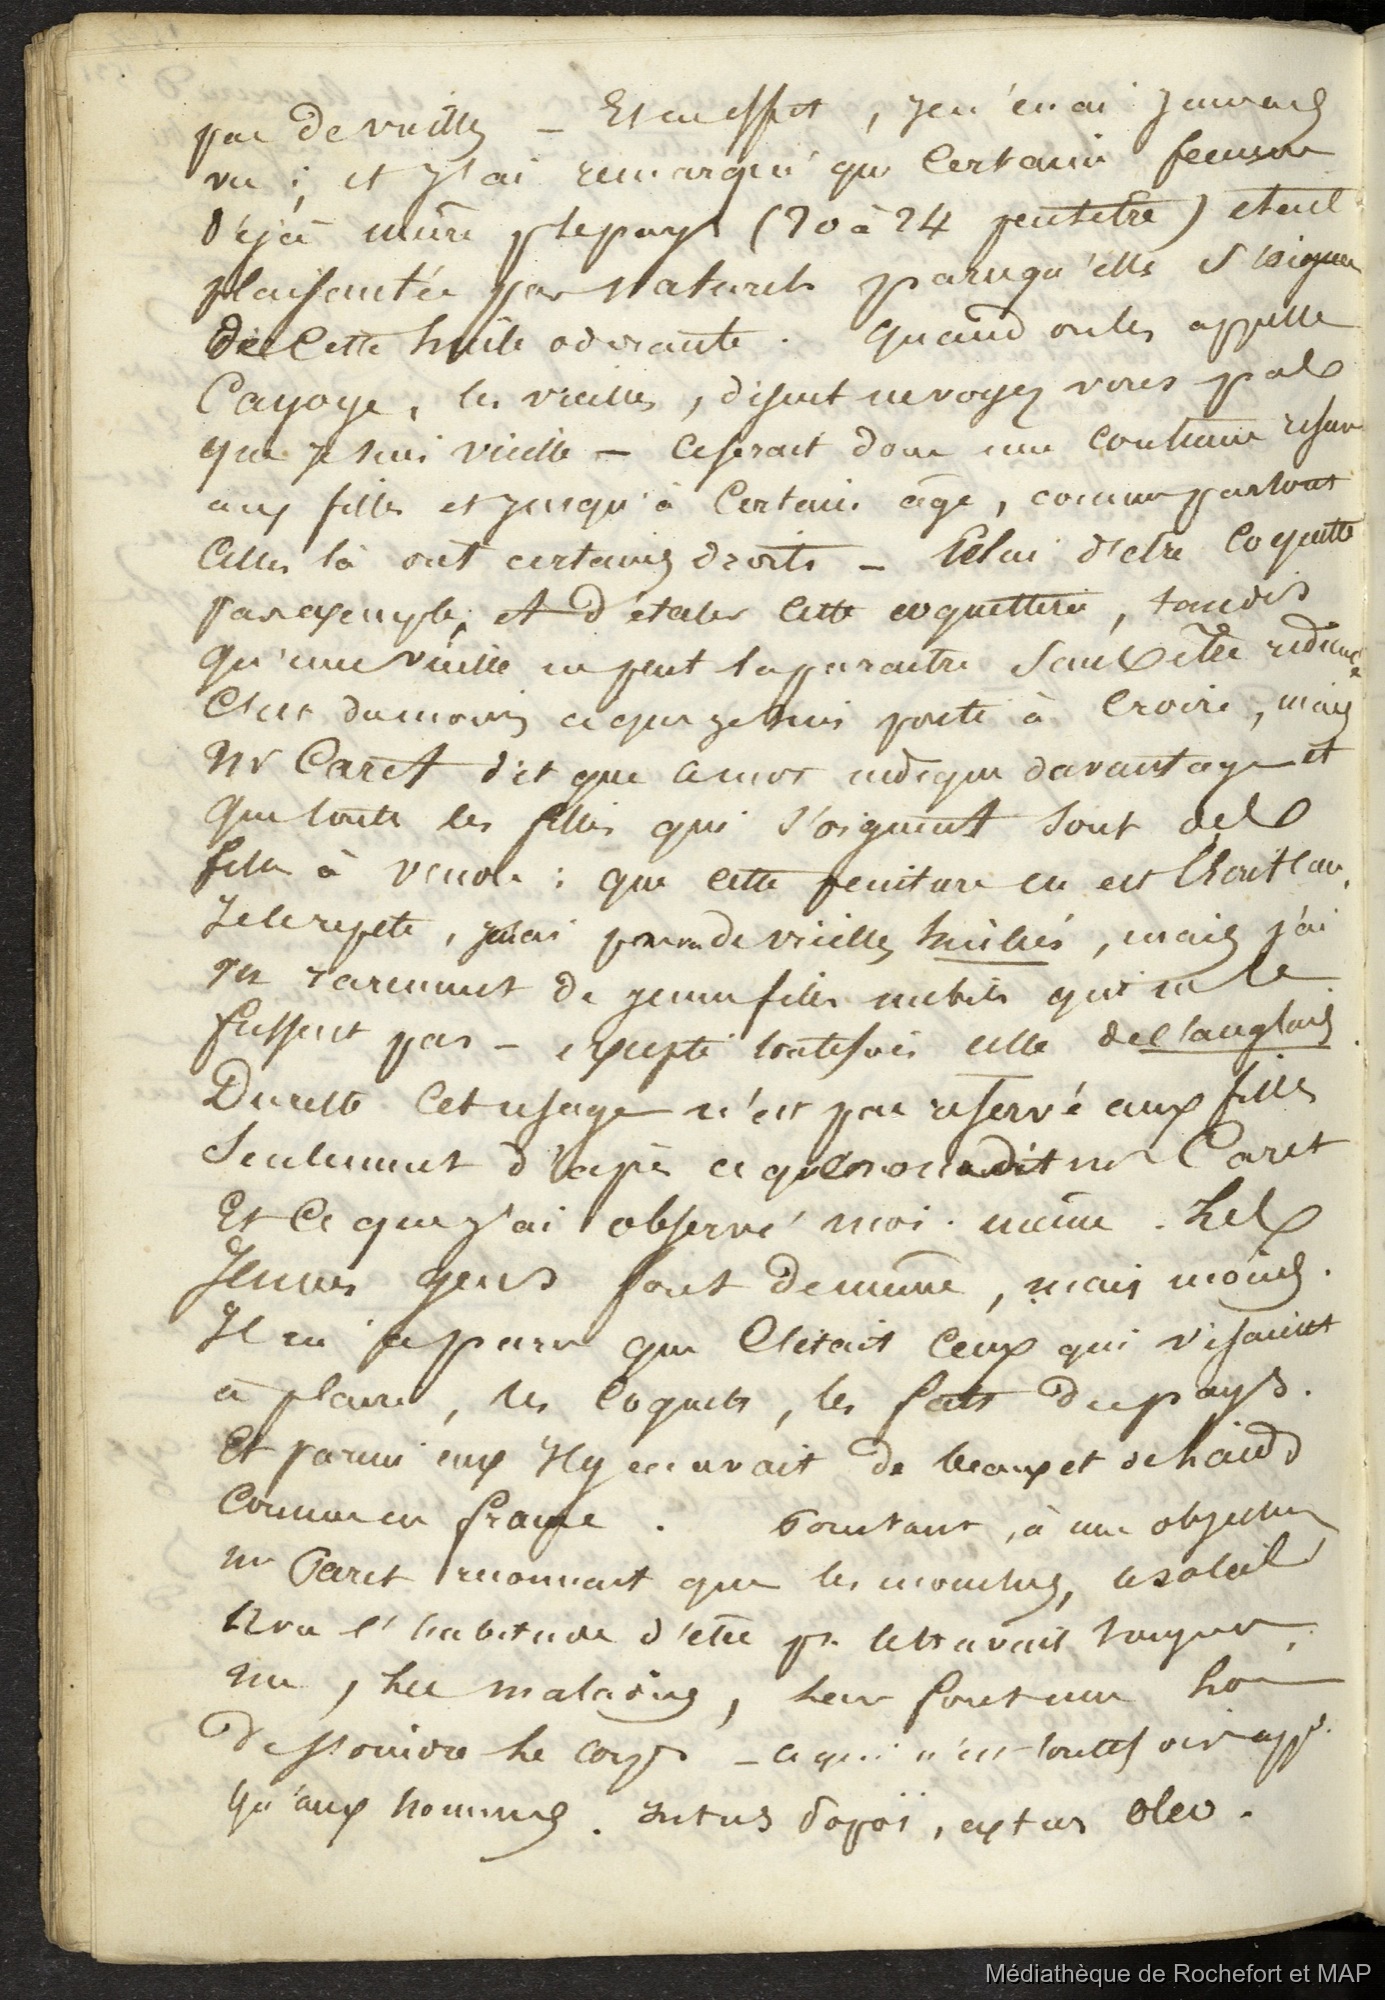 pas de vieilles — Et en effet, je n'en ai jamais
vu ; et j'ai remarqué que certaine femme
déjà mûre pr le pays (20 à 24 peutetre) etait
plaisantée par naturels parcequ'elle s'oignait
de cette huile odorante. quand on les appelle
, les vieilles, disent ne voyez vous pas
que je suis vieille — ce serait donc une coutume
aux filles et jusqu'à certain âge, comme partout
Celles là ont certains droits — Celui d'etre coquette
par exemple, et d'étaler cette coquetterie, tandis
qu'une vieille ne peut la paraitre sans être ridicule
C'est du moins ce que je suis porté à croire, mais
Mr Caret dit que ce mot indique davantage et
que toute les filles qui s'oignent sont des
filles à vendre : que cette peinture en est l'écriteau.
Je le repete, je n'ai pas vu de vieilles huilées, mais j'ai
vu rarement de jeunes filles nubiles qui ne le
fussent pas — excepté toutefois celle des anglais.
Du reste cet usage n'est pas reservé aux filles
Seulement d'après ce que nous a dit mr Caret
Et ce que j'ai observé moi-même. Les
Jeunes gens font de meme, mais moins.
Il m'a paru que c'était ceux qui visaient
à plaire, les coquets, les fats du pays.
Et parmi eux Il y en avait de beaux et de laids
Comme en france. Pourtant, à une objection
mr Caret reconnait que les mouches, le soleil
vu l'habitude d'etre
nu, les maladies, leur font une loi
de s'oindre le corps — ce qui n'est toutefois appl.
qu'aux hommes. Intus popoï, extus oleo.
Médiathèque de Rochefort et MAP